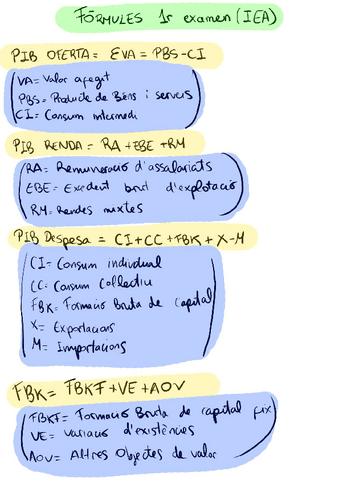 FÓRMULES 1r examen (IEA)
PIB OFERTA = EVA = PBS-CI
VA= Valor afegit
PBS= Producte de Béns i serveis
CI= Consum intermedi
PIB RENDA = RA + EBE + RM
RA= Remuneració d'assalariats
EBE= Exedent brut d'explotació
RM= Rendes mixtes
PIB Despesa = CI + CC + FBK + X-M
CI= Consum individual
CC= Consum Col·lectiu
FBK= Formació Bruta de Capital
X= Exportacions
M= Importacions
FBK= FBKF + VE + AOV
FBKF= Formació Bruta de capital fix
VE= Variació d'existències
AOV= Altres Objectes de valor